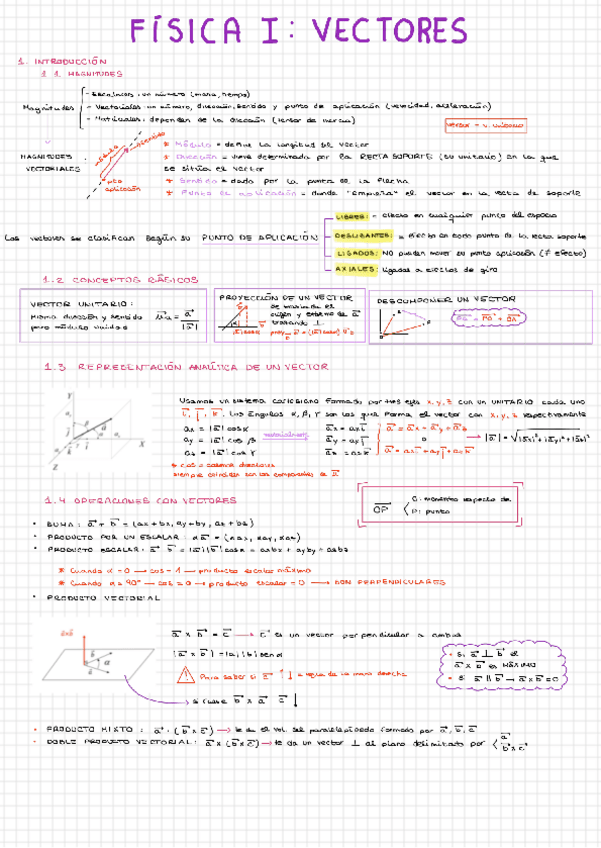 FÍSICA I: VECTORES
1. INTRODUCCIÓN
1.1. MAGNITUDES
Magnitudes
- Escalares: un número (masa, tiempo)
- Vectoriales: un número, dirección, sentido y punto de aplicación (velocidad, aceleración)
- Matriciales: dependen de la dirección (tensor de inercia)
vector = v. unitario
MAGNITUDES VECTORIALES:
módulo
sentido
pto aplicación
* Módulo = define la longitud del vector
* Dirección = viene determinado por la RECTA SOPORTE (su unitario) en la que
se sitúa el vector
* Sentido = dado por la punta de la flecha
* Punto de aplicación = donde "empieza" el vector en la recta de soporte
Los vectores se clasifican según su PUNTO DE APLICACIÓN
LIBRES: = efecto en cualquier punto del espacio
DESLIZANTES: = efecto en todo punto de la recta soporte
LIGADOS: NO pueden mover su punto aplicación (≠ efecto)
AXIALES: ligados a efectos de giro
1.2 CONCEPTOS BÁSICOS
VECTOR UNITARIO:
misma dirección y sentido
pero módulo unidad
u⃗a = a⃗ / |a⃗|
PROYECCIÓN DE UN VECTOR
origen y extremo de a⃗
trazando ⊥
DESCOMPONER UN VECTOR
1.3 REPRESENTACIÓN ANALÍTICA DE UN VECTOR
Usamos un sistema cartesiano formado por tres ejes x, y, z con un UNITARIO cada uno
i⃗, j⃗, k⃗. Los ángulos α, β, γ son los que forma el vector con x, y, z respectivamente
ax = |a⃗| cos α
ay = |a⃗| cos β
az = |a⃗| cos γ
vectorialmente
a⃗x = ax i⃗
a⃗y = ay j⃗
a⃗z = az k⃗
a⃗ = a⃗x + a⃗y + a⃗z
o
a⃗ = ax i⃗ + ay j⃗ + az k⃗
→ |a⃗| = √|ax|² + |ay|² + |az|²
* cos = cosenos directores
siempre coinciden con las componentes de
1.4 OPERACIONES CON VECTORES
OP⃗
O: momento respecto de
P: punto
• SUMA: a⃗ + b⃗ = (ax + bx, ay + by, az + bz)
• PRODUCTO POR UN ESCALAR:
• PRODUCTO ESCALAR: a⃗ · b⃗ = |a⃗| |b⃗| cos α = axbx + ayby + azbz
* Cuando α = 0 → cos = 1 → producto escalar máximo
* Cuando α = 90° → cos = 0 → producto escalar = 0 → SON PERPENDICULARES
• PRODUCTO VECTORIAL
a⃗ × b⃗
a⃗
b⃗
α
a⃗ × b⃗ = c⃗ → c⃗ es un vector perpendicular a ambos
|a⃗ × b⃗| = |a| |b| sen α
Para saber si c⃗ ↑↓ → regla de la mano derecha
si fuese b⃗ × a⃗ c⃗ ↓
• Si a⃗ ⊥ b⃗ el
a⃗ × b⃗ es MÁXIMO
• Si a⃗ || b⃗ → a⃗ × b⃗ = 0
• PRODUCTO MIXTO: a⃗ · (b⃗ × c⃗) → te da el vol. del paralelepípedo formado por a⃗, b⃗, c⃗
• DOBLE PRODUCTO VECTORIAL: a⃗ × (b⃗ × c⃗) → te da un vector ⊥ al plano delimitado por a⃗
b⃗ × c⃗